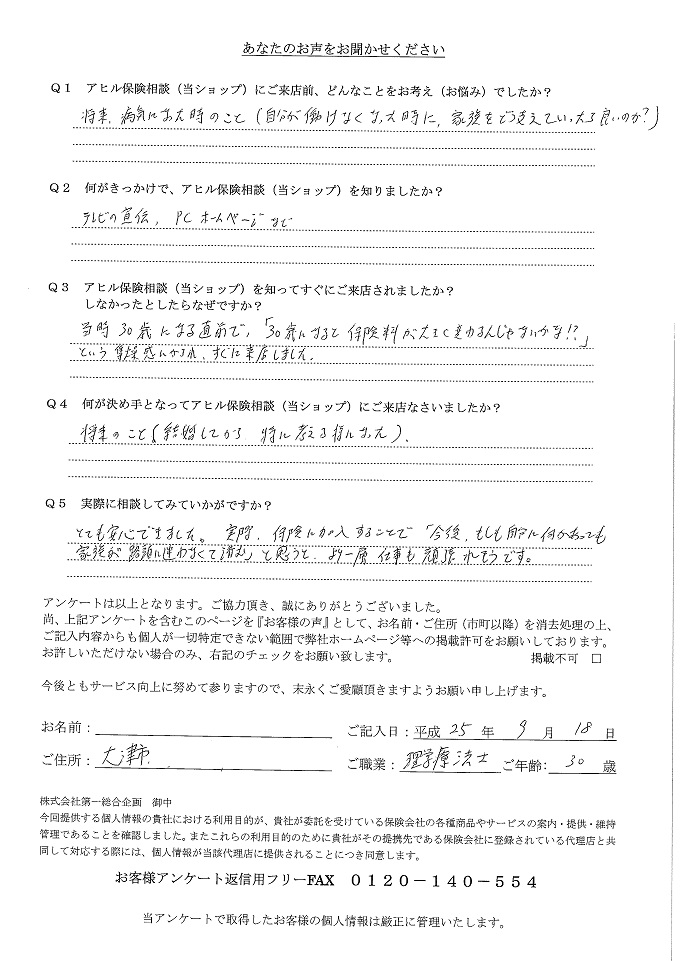 あなたのお声をお聞かせください
Q1 アヒル保険相談(当ショップ)にご来店前、どんなことをお考え(お悩み)でしたか?
将来、病気になった時のこと(自分が働けなくなった時に、家族をどう支えていったら良いのか?)
Q2 何がきっかけで、アヒル保険相談(当ショップ)を知りましたか?
テレビの宣伝、PCホームページなど
Q3 アヒル保険相談(当ショップ)を知ってすぐにご来店されましたか?
しなかったとしたらなぜですか?
当時30歳になる直前で、「30歳になると保険料が大きく変わるんじゃないかな!?」
という焦燥感にかられ、すぐに来店しました。
Q4 何が決め手となってアヒル保険相談(当ショップ)にご来店なさいましたか?
将来のこと(結婚してから特に考える様になった)。
Q5 実際に相談してみていかがですか?
とても安心できました。実際、保険に加入することで「今後、もしも自分に何かあっても
家族が路頭に迷わなくて済む」と思うと、より一層仕事も頑張れそうです。
アンケートは以上となります。ご協力頂き、誠にありがとうございました。
尚、上記アンケートを含むこのページを『お客様の声』として、お名前・ご住所(市町以降)を消去処理の上、
ご記入内容からも個人が一切特定できない範囲で弊社ホームページ等への掲載許可をお願いしております。
お許しいただけない場合のみ、右記のチェックをお願い致します。 掲載不可 □
今後ともサービス向上に努めて参りますので、末永くご愛顧頂きますようお願い申し上げます。
お名前: ご記入日:平成 25 年 9 月 18 日
ご住所: 大津市 ご職業: 理学療法士 ご年齢: 30 歳
株式会社第一総合企画 御中
今回提供する個人情報の貴社における利用目的が、貴社が委託を受けている保険会社の各種商品やサービスの案内・提供・維持
管理であることを確認しました。またこれらの利用目的のために貴社がその提携先である保険会社に登録されている代理店と共
同して対応する際には、個人情報が当該代理店に提供されることにつき同意します。
お客様アンケート返信用フリーFAX 0120-140-554
当アンケートで取得したお客様の個人情報は厳正に管理いたします。